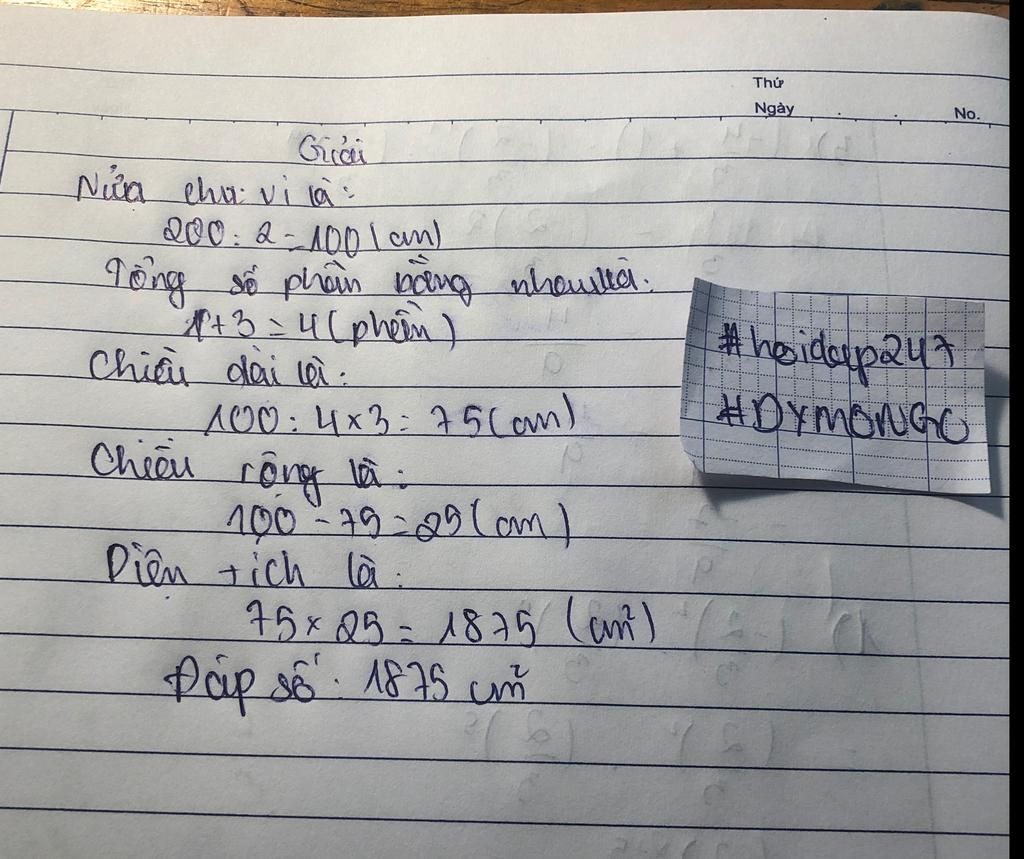 Thứ
Ngày
No.
Giải
Nửa chu vi là:
200 : 2 = 100 (cm)
Tổng số phần bằng nhau là:
1+3 = 4 (phần)
Chiều dài là:
100 : 4 x 3 = 75 (cm)
Chiều rộng là:
100 - 75 = 25 (cm)
Diện tích là:
75 x 25 = 1875 (cm²)
Đáp số : 1875 cm²
#hoidap247
#DYMONGO